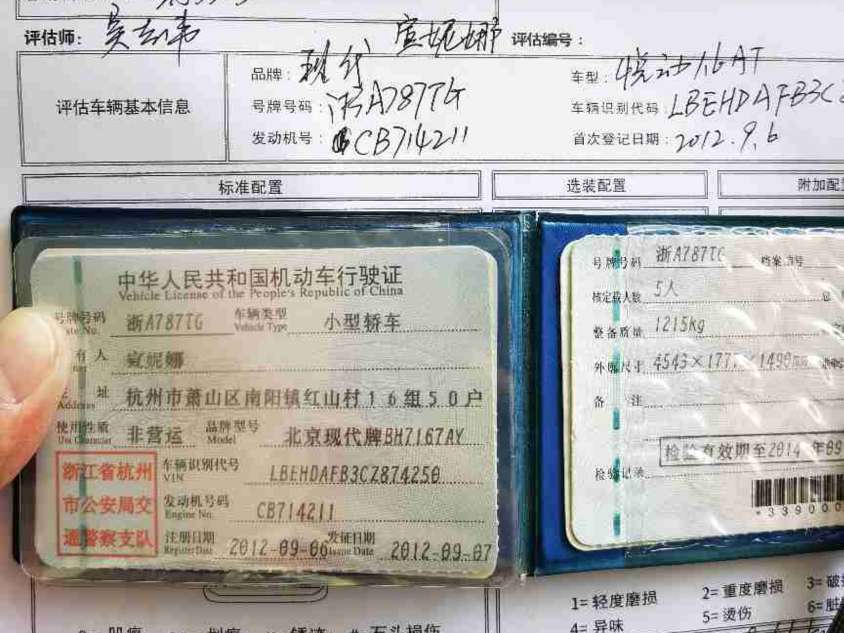 评估师: 吴志伟 宣妮娜 评估编号:
评估车辆基本信息
品牌: 现代 车型: 悦动1.6AT
号牌号码: 浙A787TG 车辆识别代码: LBEHDAFB3C
发动机号: CB714211 首次登记日期: 2012.9.6
标准配置 选装配置 附加配
中华人民共和国机动车行驶证
Vehicle License of the People's Republic of China
号牌号码 浙A787TG 车辆类型 小型轿车
Plate No. Vehicle Type
有人 宣妮娜
址 杭州市萧山区南阳镇红山村16组50户
Address
使用性质 非营运 品牌型号 北京现代牌BH7167AY
Use Character Model
浙江省杭州
市公安局交
通警察支队
车辆识别代号 LBEHDAFB3CZ874250
VIN
发动机号码 CB714211
Engine No.
注册日期 2012-09-06 发证日期 2012-09-07
Register Date Issue Date
号牌号码 浙A787TG 档案编号
核定载人数 5人
整备质量 1215kg
外廓尺寸 4543×177 ×1490
备注
检验有效期至2014年09
检验记录
*339000
1=轻度磨损 2=重度磨损 3=破
4=异味 5=烫伤 6=脏
凹痕 划痕 锈迹 石头损伤